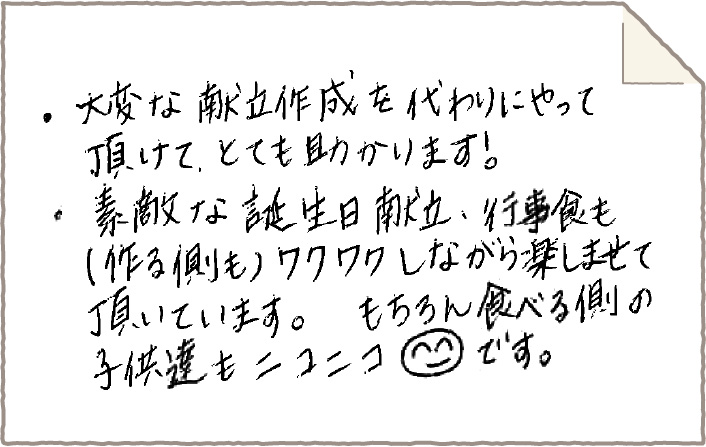 ・大変な献立作成を代わりにやって
頂けて、とても助かります!。
・素敵な誕生日献立、行事食も
(作る側も)ワクワクしながら楽しませて
頂いています。 もちろん食べる側の
子供達もニコニコ😊です。